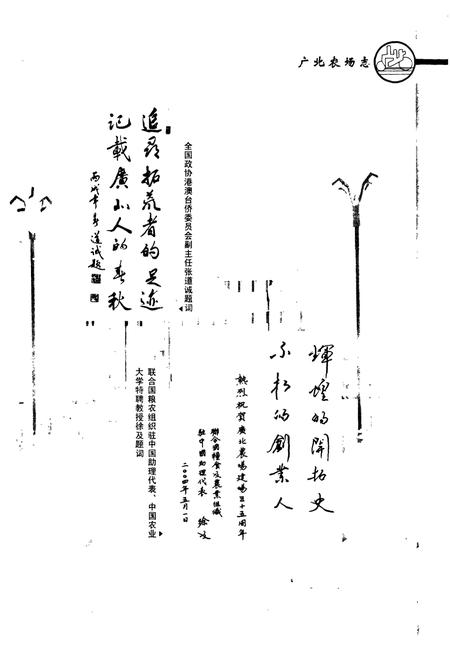 广北农场志
追寻拓荒者的足迹
記載廣北人的春秋
丙戌年春 道诚题
全国政协港澳台侨委员会副主任张道诚题词
輝煌的開拓史
不朽的創業人
熱烈祝賀廣北農場建場五十五周年
聯合國糧食及農業組織
駐中國助理代表 徐及
二〇〇四年五月一日
联合国粮农组织驻中国助理代表、中国农业
大学特聘教授徐及题词